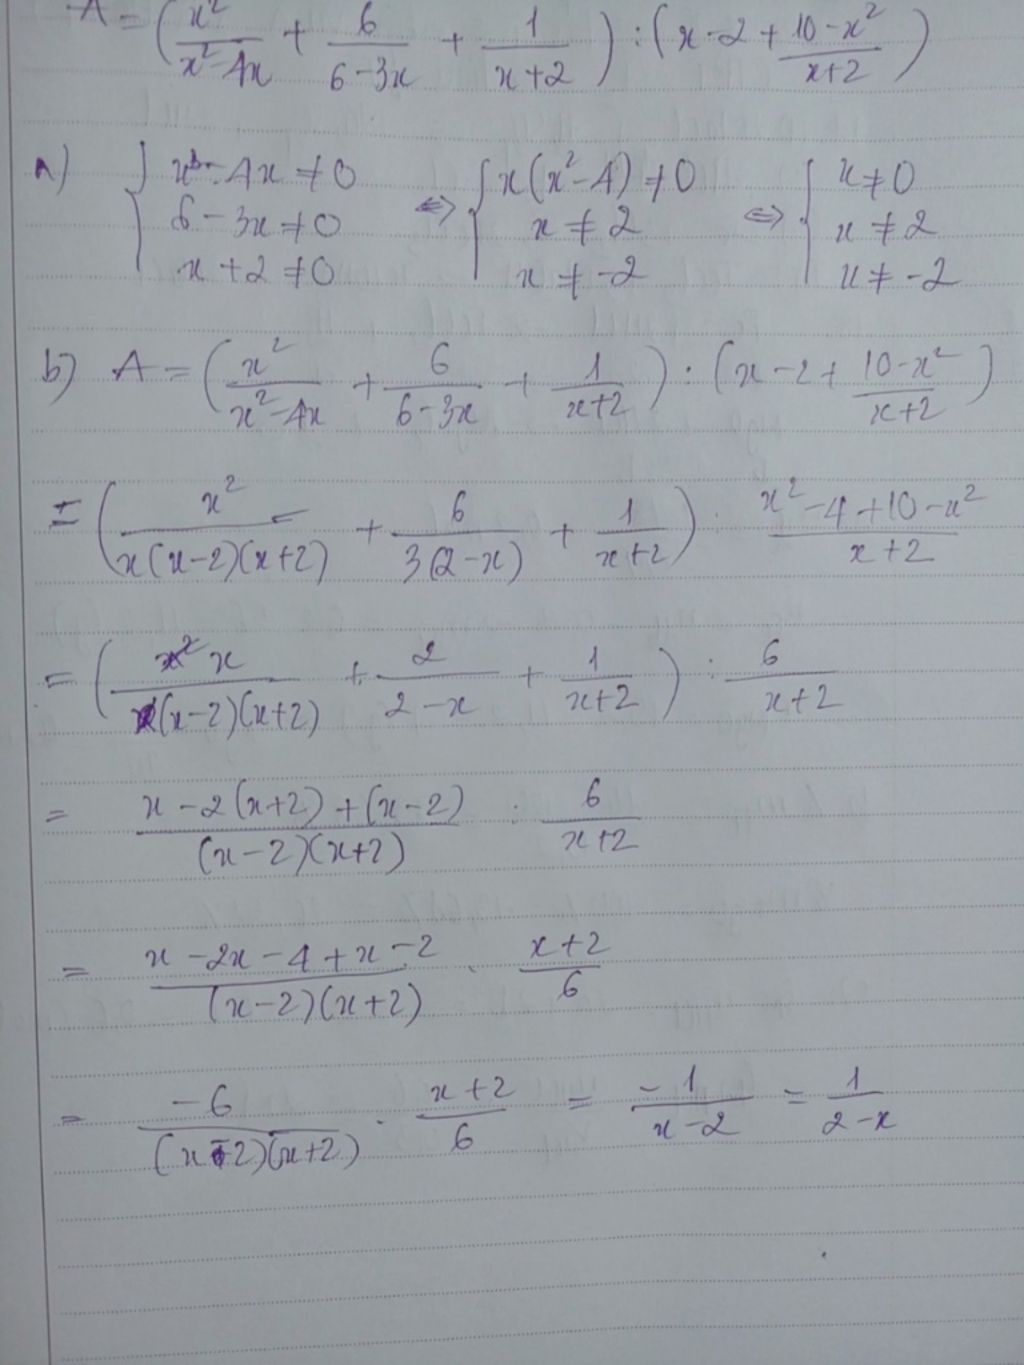 A = (x²/(x²-4x) + 6/(6-3x) + 1/(x+2)) : (x-2 + (10-x²)/(x+2))
a) { x³-4x ≠ 0 ⇔ { x(x²-4) ≠ 0 ⇔ { x ≠ 0
6-3x ≠ 0 x ≠ 2 x ≠ 2
x+2 ≠ 0 x ≠ -2 x ≠ -2
b) A = (x²/(x²-4x) + 6/(6-3x) + 1/(x+2)) : (x-2 + (10-x²)/(x+2))
= (x²/(x(x-2)(x+2)) + 6/(3(2-x)) + 1/(x+2)) : (x²-4+10-x²)/(x+2)
= (x/((x-2)(x+2)) + 2/(2-x) + 1/(x+2)) : 6/(x+2)
= (x-2(x+2)+(x-2))/((x-2)(x+2)) : 6/(x+2)
= (x-2x-4+x-2)/((x-2)(x+2)) . (x+2)/6
= -6/((x-2)(x+2)) . (x+2)/6 = -1/(x-2) = 1/(2-x)